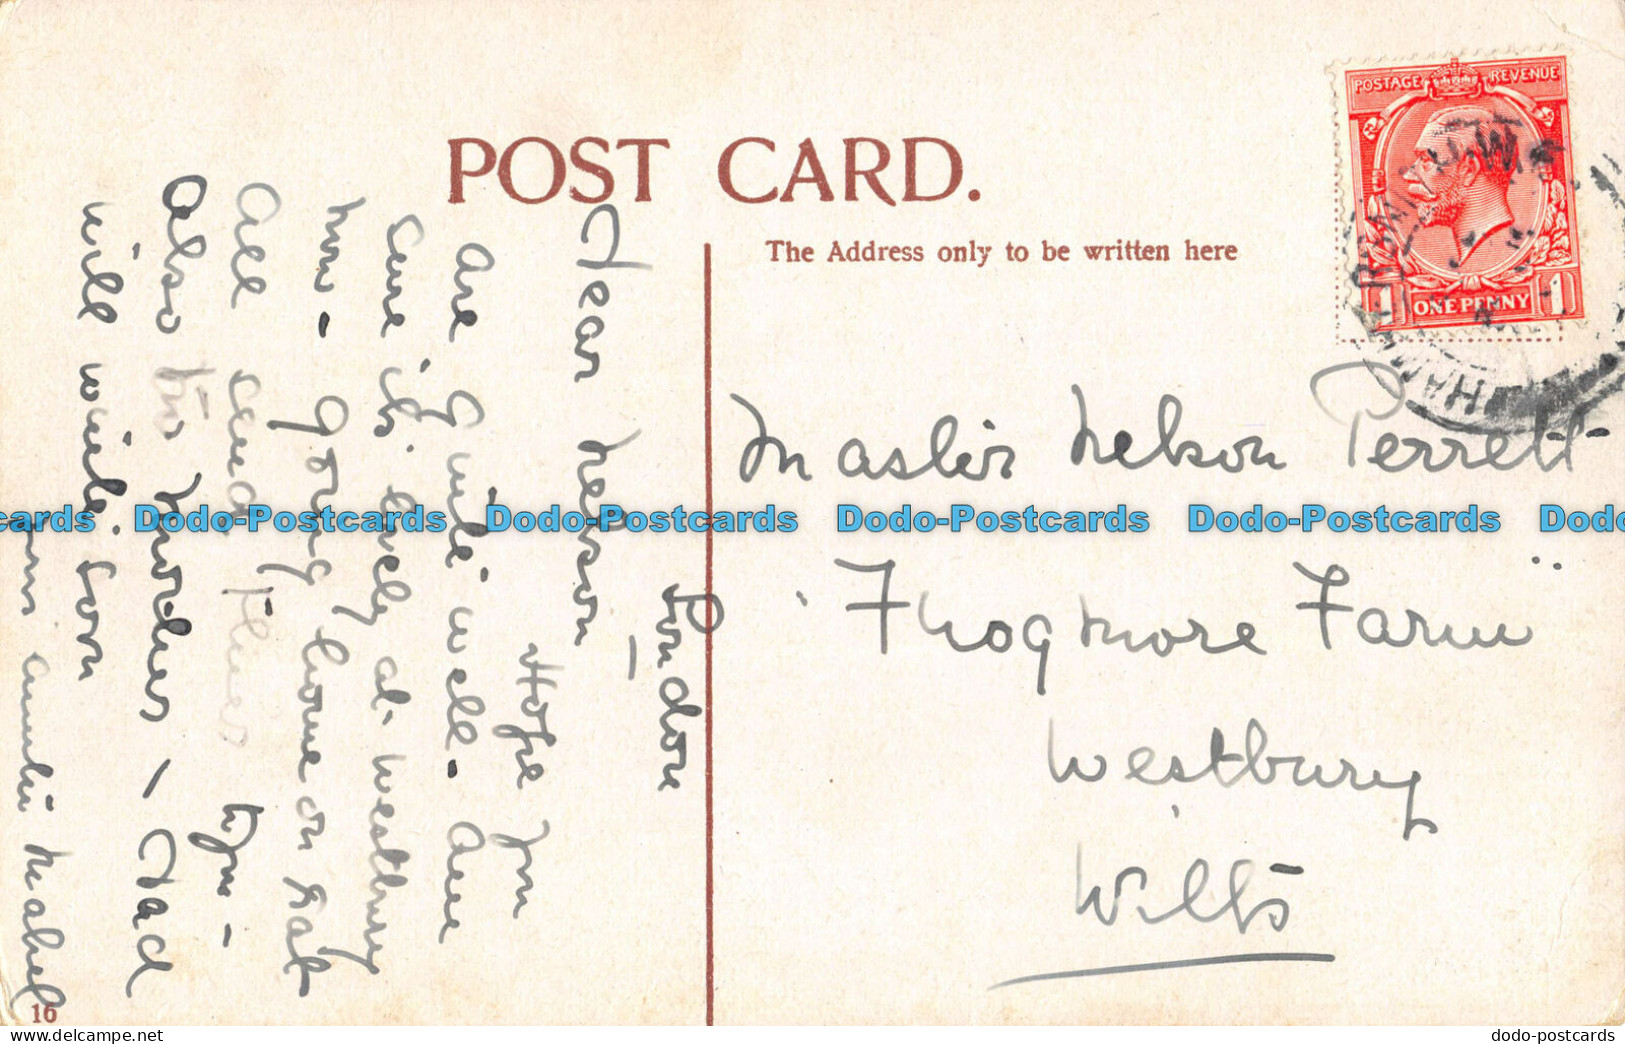 POST CARD.
The Address only to be written here
POSTAGE REVENUE
1 ONE PENNY 1
HAM
W
London
Dear Nelson
Hope you
are quite well. am
sure its lovely at Westbury
now - going home on Sat
All send love
Also to Mother - Dad
will write soon
from Auntie Mabel
Master Nelson Perrett
Frogmore Farm
Westbury
Wilts
16
Dodo-Postcards Dodo-Postcards Dodo-Postcards Dodo-Postcards
dodo-postcards